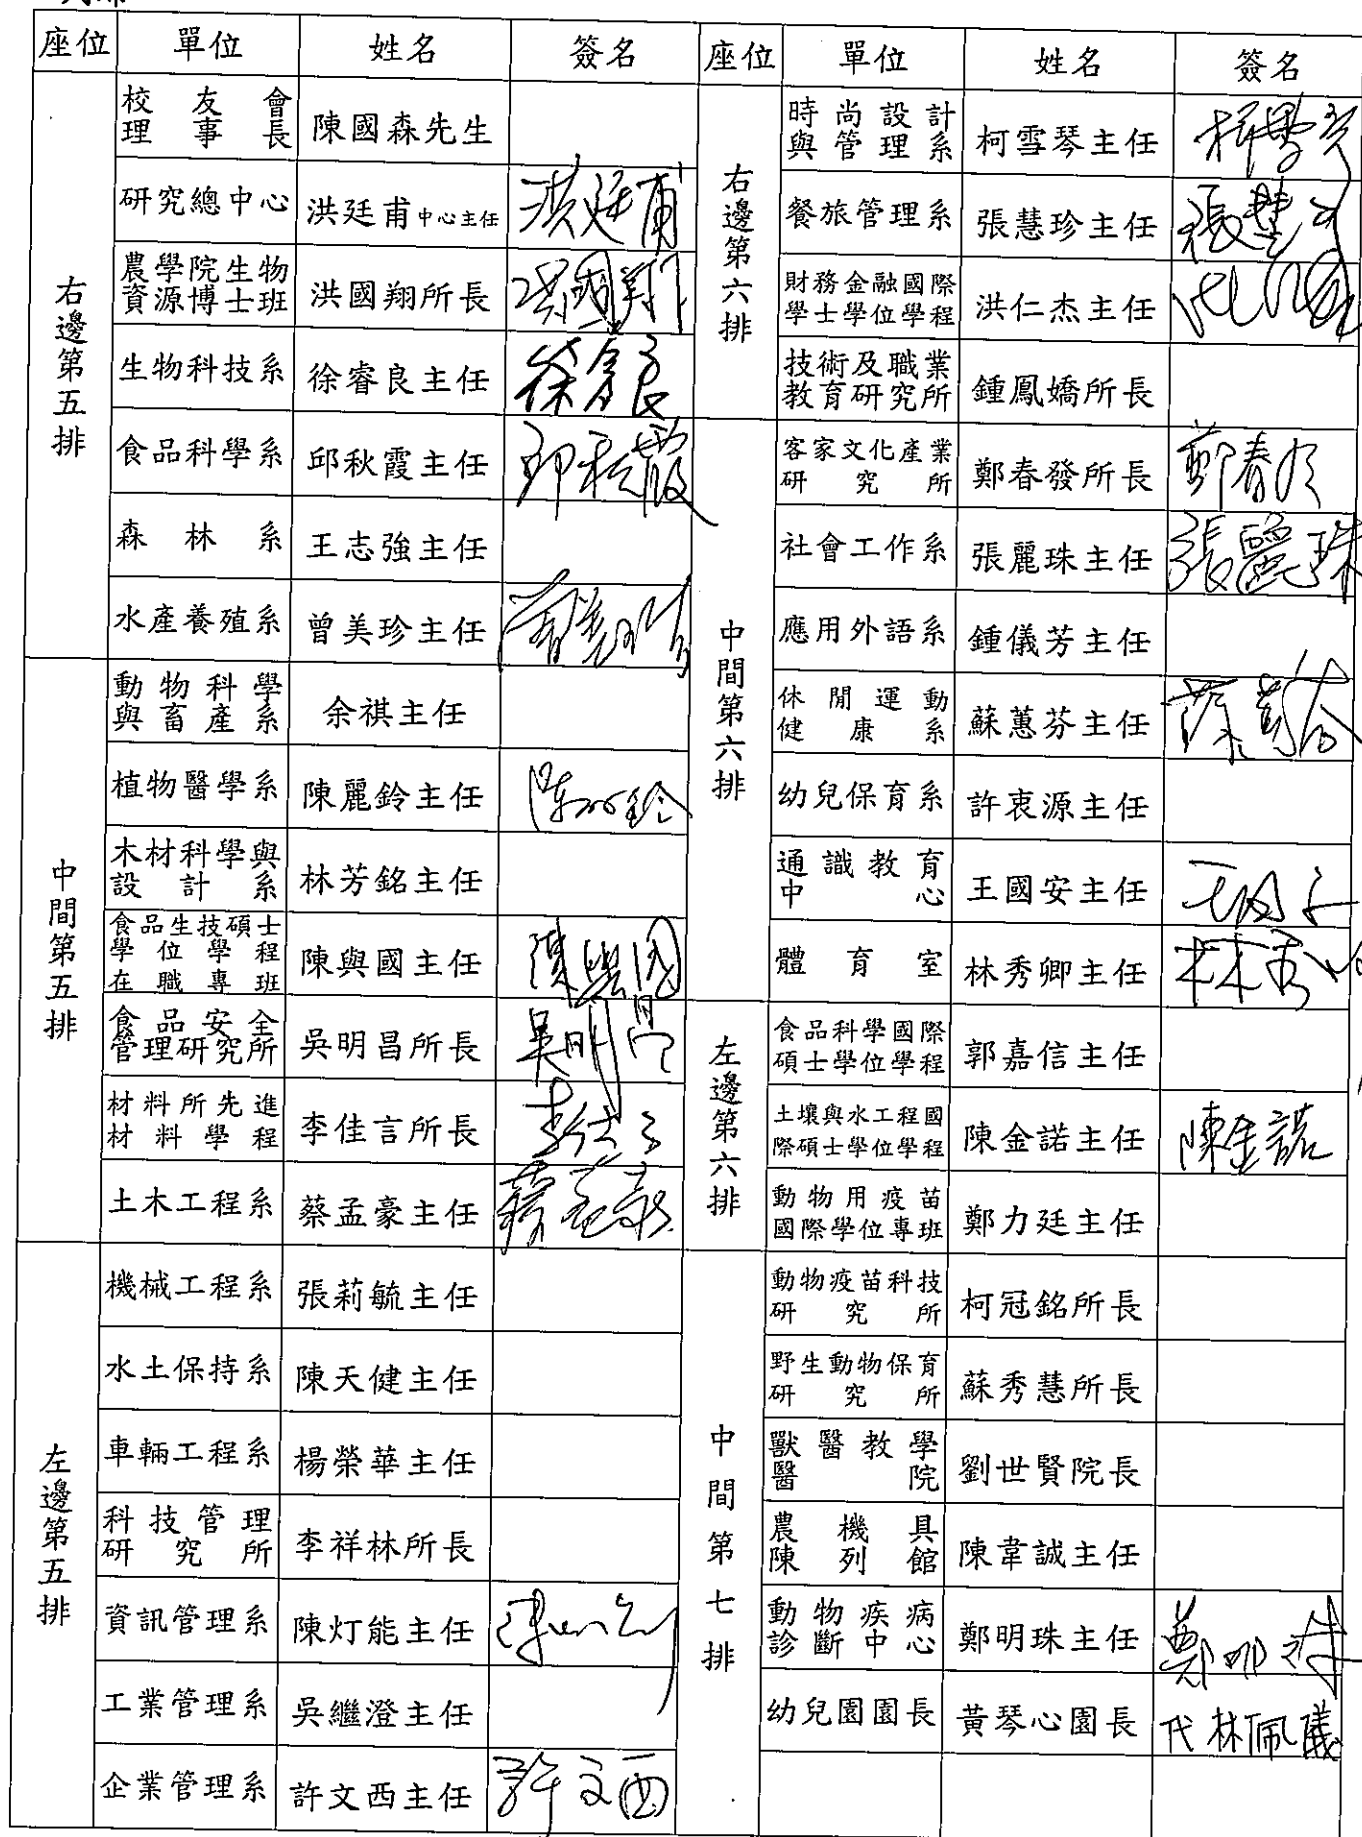 座位 單位 姓名 簽名 座位 單位 姓名 簽名
右邊第五排
校友會
理事長 陳國森先生
研究總中心 洪廷甫中心主任 洪廷甫
農學院生物
資源博士班 洪國翔所長 洪國翔
生物科技系 徐睿良主任
食品科學系 邱秋霞主任 邱秋霞
森林系 王志強主任
水產養殖系 曾美珍主任
中間第五排
動物科學
與畜產系 余祺主任
植物醫學系 陳麗鈴主任
木材科學與
設計系 林芳銘主任
食品生技碩士
學位學程
在職專班 陳與國主任 陳與國
食品安全
管理研究所 吳明昌所長 吳明昌
材料所先進
材料學程 李佳言所長
土木工程系 蔡孟豪主任
左邊第五排
機械工程系 張莉毓主任
水土保持系 陳天健主任
車輛工程系 楊榮華主任
科技管理
研究所 李祥林所長
資訊管理系 陳灯能主任
工業管理系 吳繼澄主任
企業管理系 許文西主任 許文西
右邊第六排
時尚設計
與管理系 柯雪琴主任
餐旅管理系 張慧珍主任
財務金融國際
學士學位學程 洪仁杰主任
技術及職業
教育研究所 鍾鳳嬌所長
中間第六排
客家文化產業
研究所 鄭春發所長
社會工作系 張麗珠主任 張麗珠
應用外語系 鍾儀芳主任
休閒運動
健康系 蘇蕙芬主任
幼兒保育系 許衷源主任
通識教育
中心 王國安主任
體育室 林秀卿主任
左邊第六排
食品科學國際
碩士學位學程 郭嘉信主任
土壤與水工程國
際碩士學位學程 陳金諾主任 陳金諾
動物用疫苗
國際學位專班 鄭力廷主任
中間第七排
動物疫苗科技
研究所 柯冠銘所長
野生動物保育
研究所 蘇秀慧所長
獸醫教學
醫院 劉世賢院長
農機具
陳列館 陳韋誠主任
動物疾病
診斷中心 鄭明珠主任 鄭明珠
幼兒園園長 黃琴心園長 代林佩儀